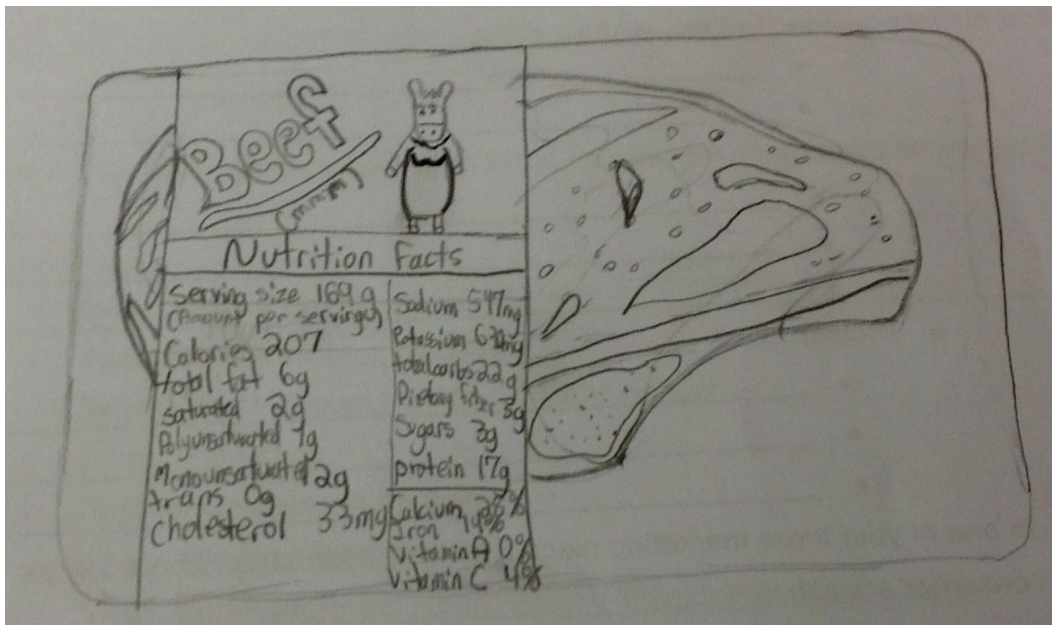 Beef
(mmm)
Nutrition Facts
Serving size 169 g
(Amount per serving)
Calories 207
total fat 6g
saturated 2g
Polyunsaturated 1g
Monounsaturated 2g
trans 0g
Cholesterol 33mg
Sodium 547mg
Potassium mg
total carbs 22g
Dietary fiber 3g
Sugars 3g
protein 17g
Calcium %
Iron 14%
Vitamin A 0%
Vitamin C 4%
one of your three marketing